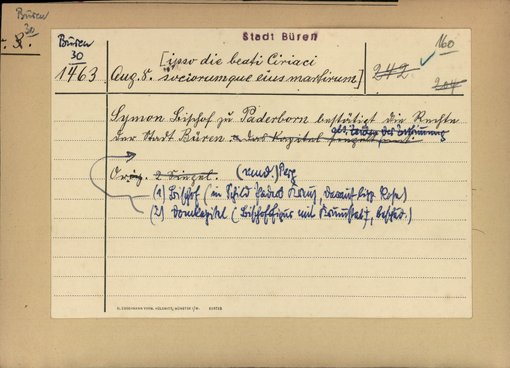 Büren
30
Stadt Büren
Büren
30
1463
Aug. 8.
[ipso die beati Ciriaci
sociorumque eius martirum]
242
160
204
Symon Bischof zu Paderborn bestätigt die Rechte
der Stadt Büren u. das Kapitel siegelt mit
Orig. 2 Siegel. Perg
(1) Bischof (in Schild Kreuz, darauf lipp. Rose)
(2) Domkapitel (Bischofsfigur mit Krummstab, beschäd.)